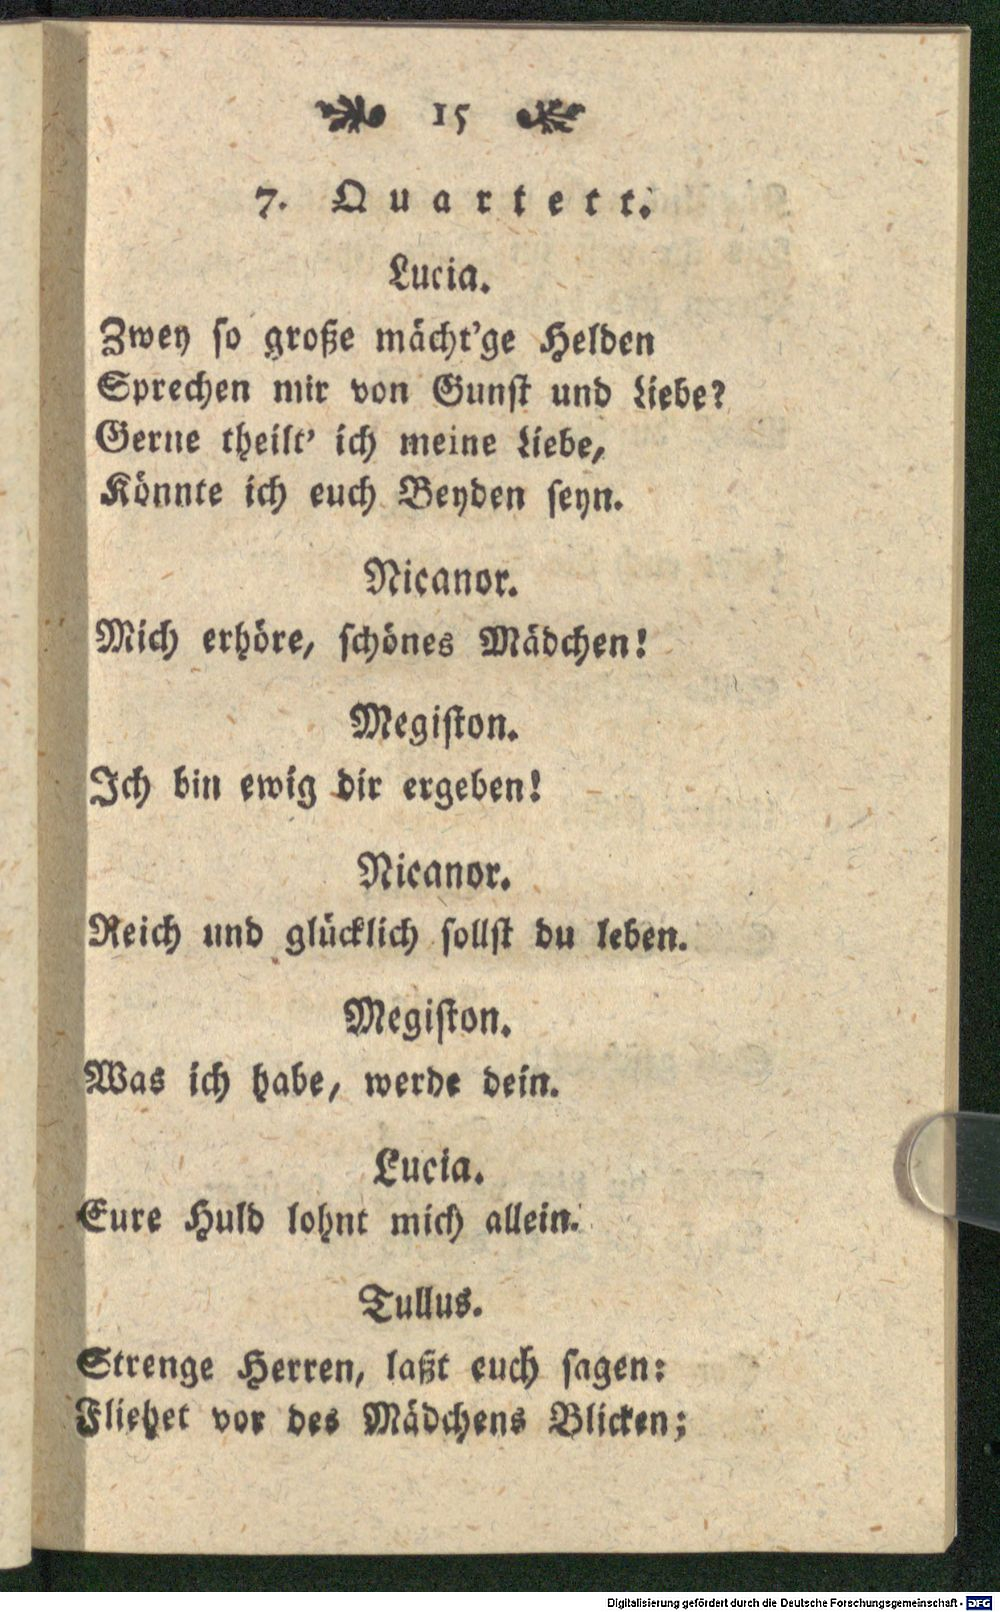 15
7. Quartett.
Lucia.
Zwey so große mächt'ge Helden
Sprechen mir von Gunst und Liebe?
Gerne theilt' ich meine Liebe,
Könnte ich euch Beyden seyn.
Nicanor.
Mich erhöre, schönes Mädchen!
Megiston.
Ich bin ewig dir ergeben!
Nicanor.
Reich und glücklich sollst du leben.
Megiston.
Was ich habe, werde dein.
Lucia.
Eure Huld lohnt mich allein.
Tullus.
Strenge Herren, laßt euch sagen:
Fliehet vor des Mädchens Blicken;
Digitalisierung gefördert durch die Deutsche Forschungsgemeinschaft - DFG